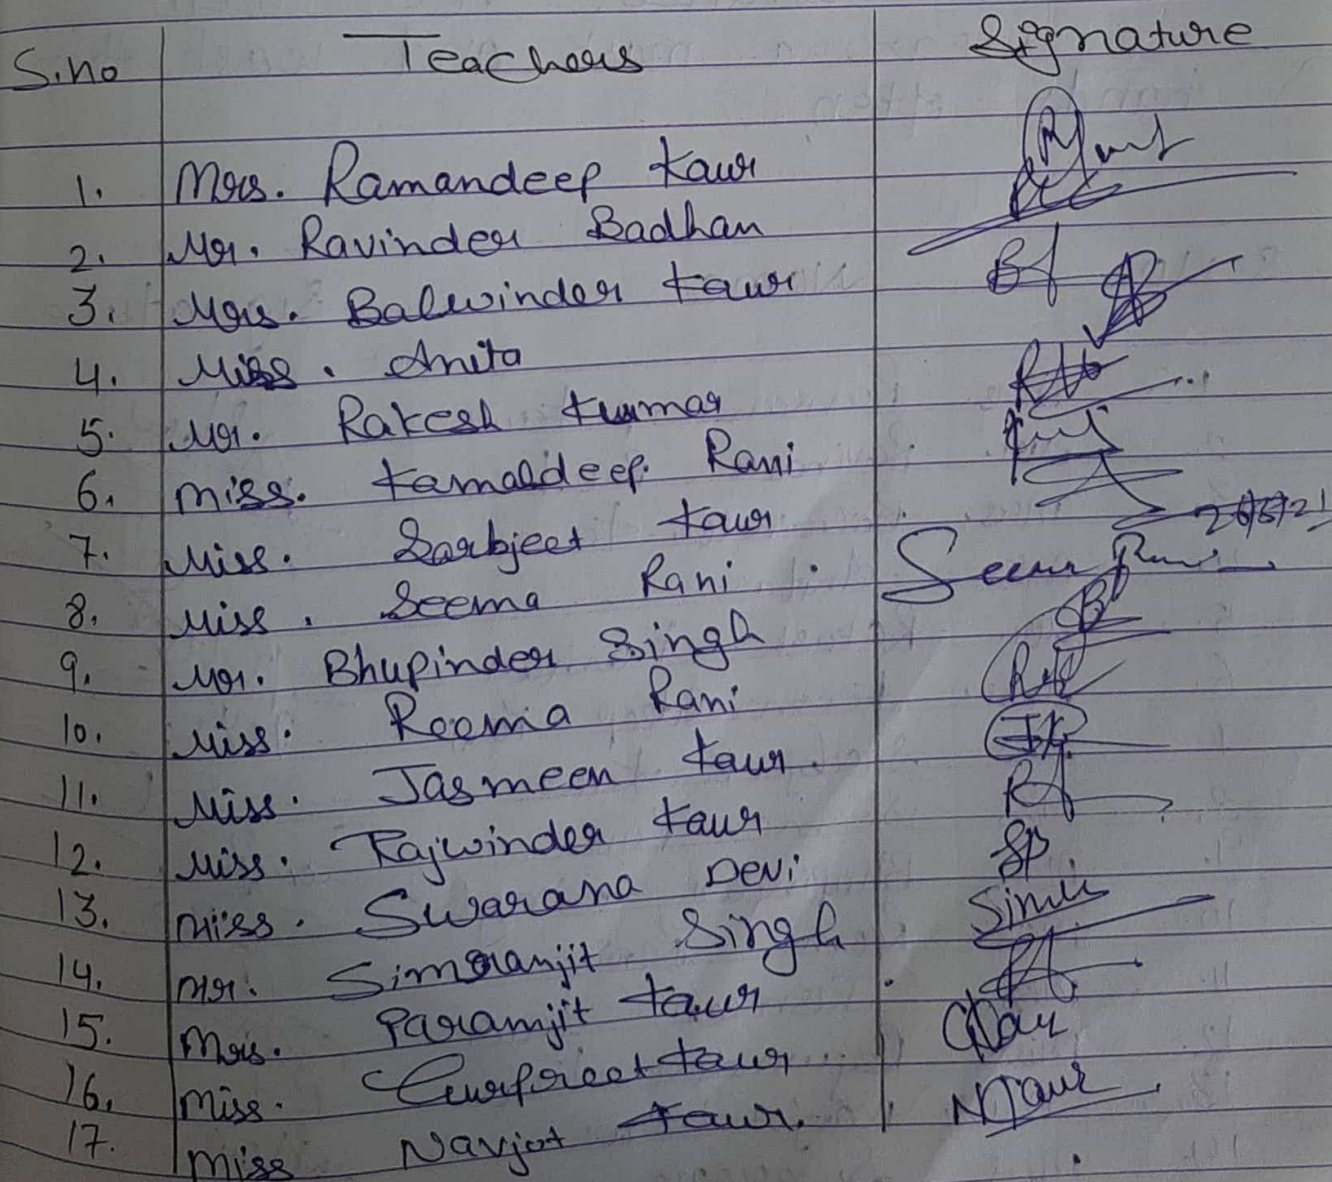 S.no Teachers Signature
1. Mrs. Ramandeep Kaur
2. Mr. Ravinder Badhan
3. Mrs. Balwinder Kaur
4. Miss. Anita
5. Mr. Rakesh Kumar
6. Miss. Kamaldeep. Rani
7. Miss. Sarbjeet Kaur
8. Miss. Seema Rani. Seema Rani
9. Mr. Bhupinder Singh
10. Miss. Reema Rani
11. Miss. Jasmeen Kaur.
12. Miss. Rajwinder Kaur
13. Miss. Swarana Devi SP.
14. Mr. Simranjit Singh
15. Mrs. Paramjit Kaur
16. Miss. Gurpreet Kaur
17. Miss Navjot Kaur. NKaur